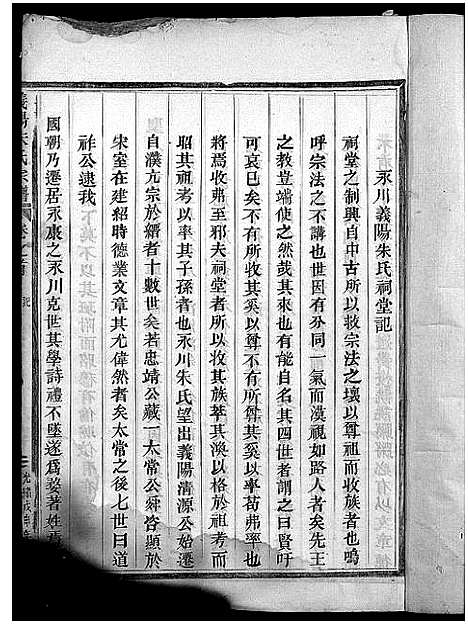 永川義陽朱氏祠堂記
祠堂之制興自中古所以救宗法之壞以尊祖而收族者也嗚
呼宗法之不講也世因有分同一氣而漠視如路人者矣先王
之教豈端使之然哉其來也有能自名其四世者謂之曰賢吁
可哀巳矣不有所收其奚以尊尊不有所尊其奚以率苟弗率也
將爲收弗至邪夫祠堂者所以收其族萃其渙以格於祖考而
昭其祖考以率其子孫者也永川朱氏望出義陽清源公始遷
自濮亢宗於縉者十數世矣若忠靖公藏一太常公舜咨顯於
宋室在建紹時德業文章其尤偉然者矣太常之後七世曰道
祚公逮我
國朝乃遷居永康之永川克世其學詩禮不墜遂爲婺著姓焉
義陽朱氏宗譜 卷之首 記